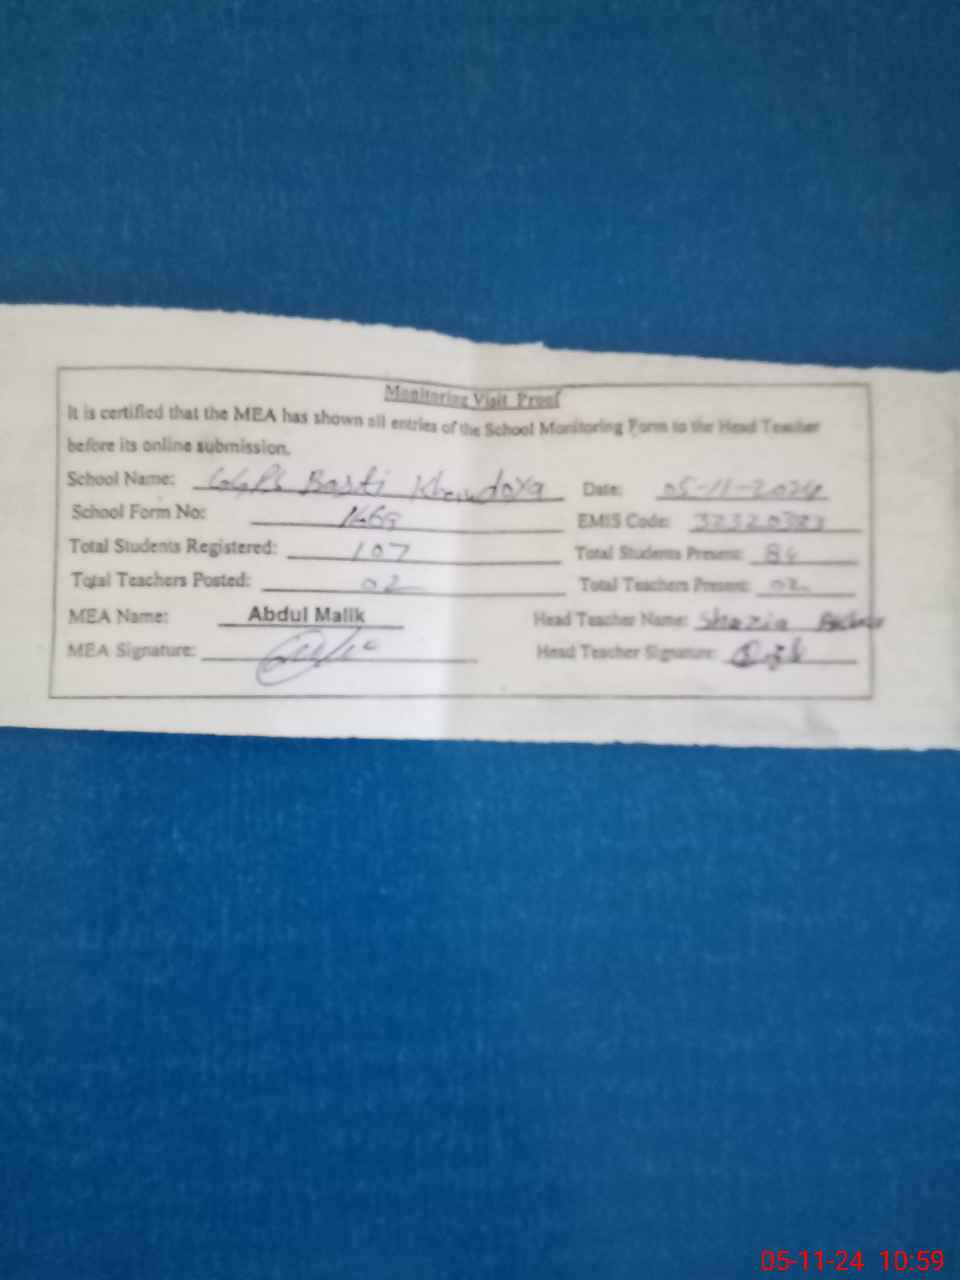 Monitoring Visit Proof
It is certified that the MEA has shown all entries of the School Monitoring Form to the Head Teacher
before its online submission.
School Name: GGPS Basti Date: 05-11-2024
School Form No: EMIS Code:
Total Students Registered: 107 Total Students Present:
Total Teachers Posted: 02 Total Teachers Present: 02
MEA Name: Abdul Malik Head Teacher Name: Shazia
MEA Signature: Head Teacher Signature:
05-11-24 10:59